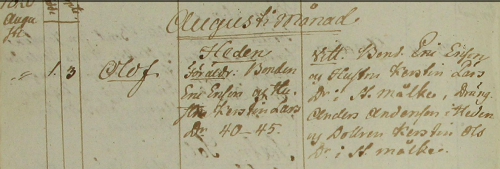 Augusti Månad
Augu
sti
1. 3
Olof
Heden
Föräldr: Bonden
Eric Ersson og Hu.
Kerstin Lars
Dr 40–45.
Vitt. Bond. Eric Ersson
og Hustru Kerstin Lars
Dr i St. målke, Dräng.
Anders Andersson i Heden
og Dottren Kerstin Ols
Dr. i St. målke.